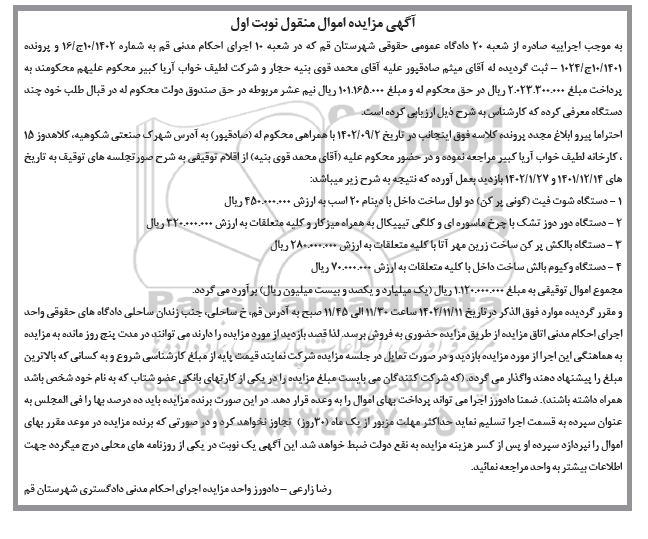 آگهی مزایده اموال منقول نوبت اول
به موجب اجراییه صادره از شعبه ۲۰ دادگاه عمومی حقوقی شهرستان قم که در شعبه ۱۰ اجرای احکام مدنی قم به شماره ۱۰/۱۴۰۲ج/۱۶ و پرونده
۱۰/۱۴۰۱ج/۱۰۲۴ – ثبت گردیده له آقای میثم صادقپور علیه آقای محمد قوی بنیه حجار و شرکت لطیف خواب آریا کبیر محکوم علیهم محکومند به
پرداخت مبلغ ۲.۰۲۳.۳۰۰.۰۰۰ ریال در حق محکوم له و مبلغ ۱۰۱.۱۶۵.۰۰۰ ریال نیم عشر مربوطه در حق صندوق دولت محکوم له در قبال طلب خود چند
دستگاه معرفی کرده که کارشناس به شرح ذیل ارزیابی کرده است.
احتراما پیرو ابلاغ مجدد پرونده کلاسه فوق اینجانب در تاریخ ۱۴۰۲/۰۹/۲ با همراهی محکوم له (صادقپور) به آدرس شهرک صنعتی شکوهیه، کلاهدوز ۱۵
، کارخانه لطیف خواب آریا کبیر مراجعه نموده و در حضور محکوم علیه (آقای محمد قوی بنیه) از اقلام توقیفی به شرح صورتجلسه های توقیف به تاریخ
های ۱۴۰۱/۱۲/۱۴ و ۱۴۰۲/۱/۲۷ بازدید بعمل آورده که نتیجه به شرح زیر میباشد:
۱ – دستگاه شوت فیت (گونی پر کن) دو لول ساخت داخل با دینام ۲۰ اسب به ارزش ۴۵۰.۰۰۰.۰۰۰ ریال
۲ – دستگاه دور دوز تشک با چرخ ماسوره ای و کلگی تیپیکال به همراه میز کار و کلیه متعلقات به ارزش ۳۲۰.۰۰۰.۰۰۰ ریال
۳ – دستگاه بالکش پر کن ساخت زرین مهر آتا با کلیه متعلقات به ارزش ۲۸۰.۰۰۰.۰۰۰ ریال
۴ – دستگاه وکیوم بالش ساخت داخل با کلیه متعلقات به ارزش ۷۰.۰۰۰.۰۰۰ ریال
مجموع اموال توقیفی به مبلغ ۱.۱۲۰.۰۰۰.۰۰۰ ریال (یک میلیارد و یکصد و بیست میلیون ریال) برآورد می گردد.
و مقرر گردیده موارد فوق الذکر در تاریخ ۱۴۰۲/۱۱/۱۱ ساعت ۱۱/۳۰ الی ۱۱/۴۵ صبح به آدرس قم، خ ساحلی، جنب زندان ساحلی دادگاه های حقوقی واحد
اجرای احکام مدنی اتاق مزایده از طریق مزایده حضوری به فروش برسد. لذا قصد بازدید از مورد مزایده را دارند می توانند در مدت پنج روز مانده به مزایده
به هماهنگی این اجرا از مورد مزایده بازدید و در صورت تمایل در جلسه مزایده شرکت نمایند قیمت پایه از مبلغ کارشناسی شروع و به کسانی که بالاترین
مبلغ را پیشنهاد دهند واگذار می گردد. (که شرکت کنندگان می بایست مبلغ مزایده را در یکی از کارتهای بانکی عضو شتاب که به نام خود شخص باشد
همراه داشته باشند). ضمنا دادورز اجرا می تواند پرداخت بهای اموال را به وعده قرار دهد. در این صورت برنده مزایده باید ده درصد بها را فی المجلس به
عنوان سپرده به قسمت اجرا تسلیم نماید حداکثر مهلت مزبور از یک ماه (۳۰روز) تجاوز نخواهد کرد و در صورتی که برنده مزایده در موعد مقرر بهای
اموال را نپردازد سپرده او پس از کسر هزینه مزایده به نفع دولت ضبط خواهد شد. این آگهی یک نوبت در یکی از روزنامه های محلی درج میگردد جهت
اطلاعات بیشتر به واحد مراجعه نمائید.
رضا زارعی – دادورز واحد مزایده اجرای احکام مدنی دادگستری شهرستان قم
ParsNamadData
۰۲۱-۸۸۳۴۹۶۷۰-۵